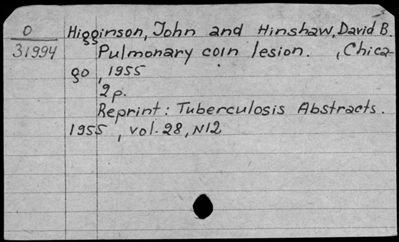 O Higginson, John and Hinshaw, David B.
31994 Pulmonary coin lesion. , Chica-
go , 1955
2p.
Reprint: Tuberculosis Abstracts.
1955 , vol. 28, N12